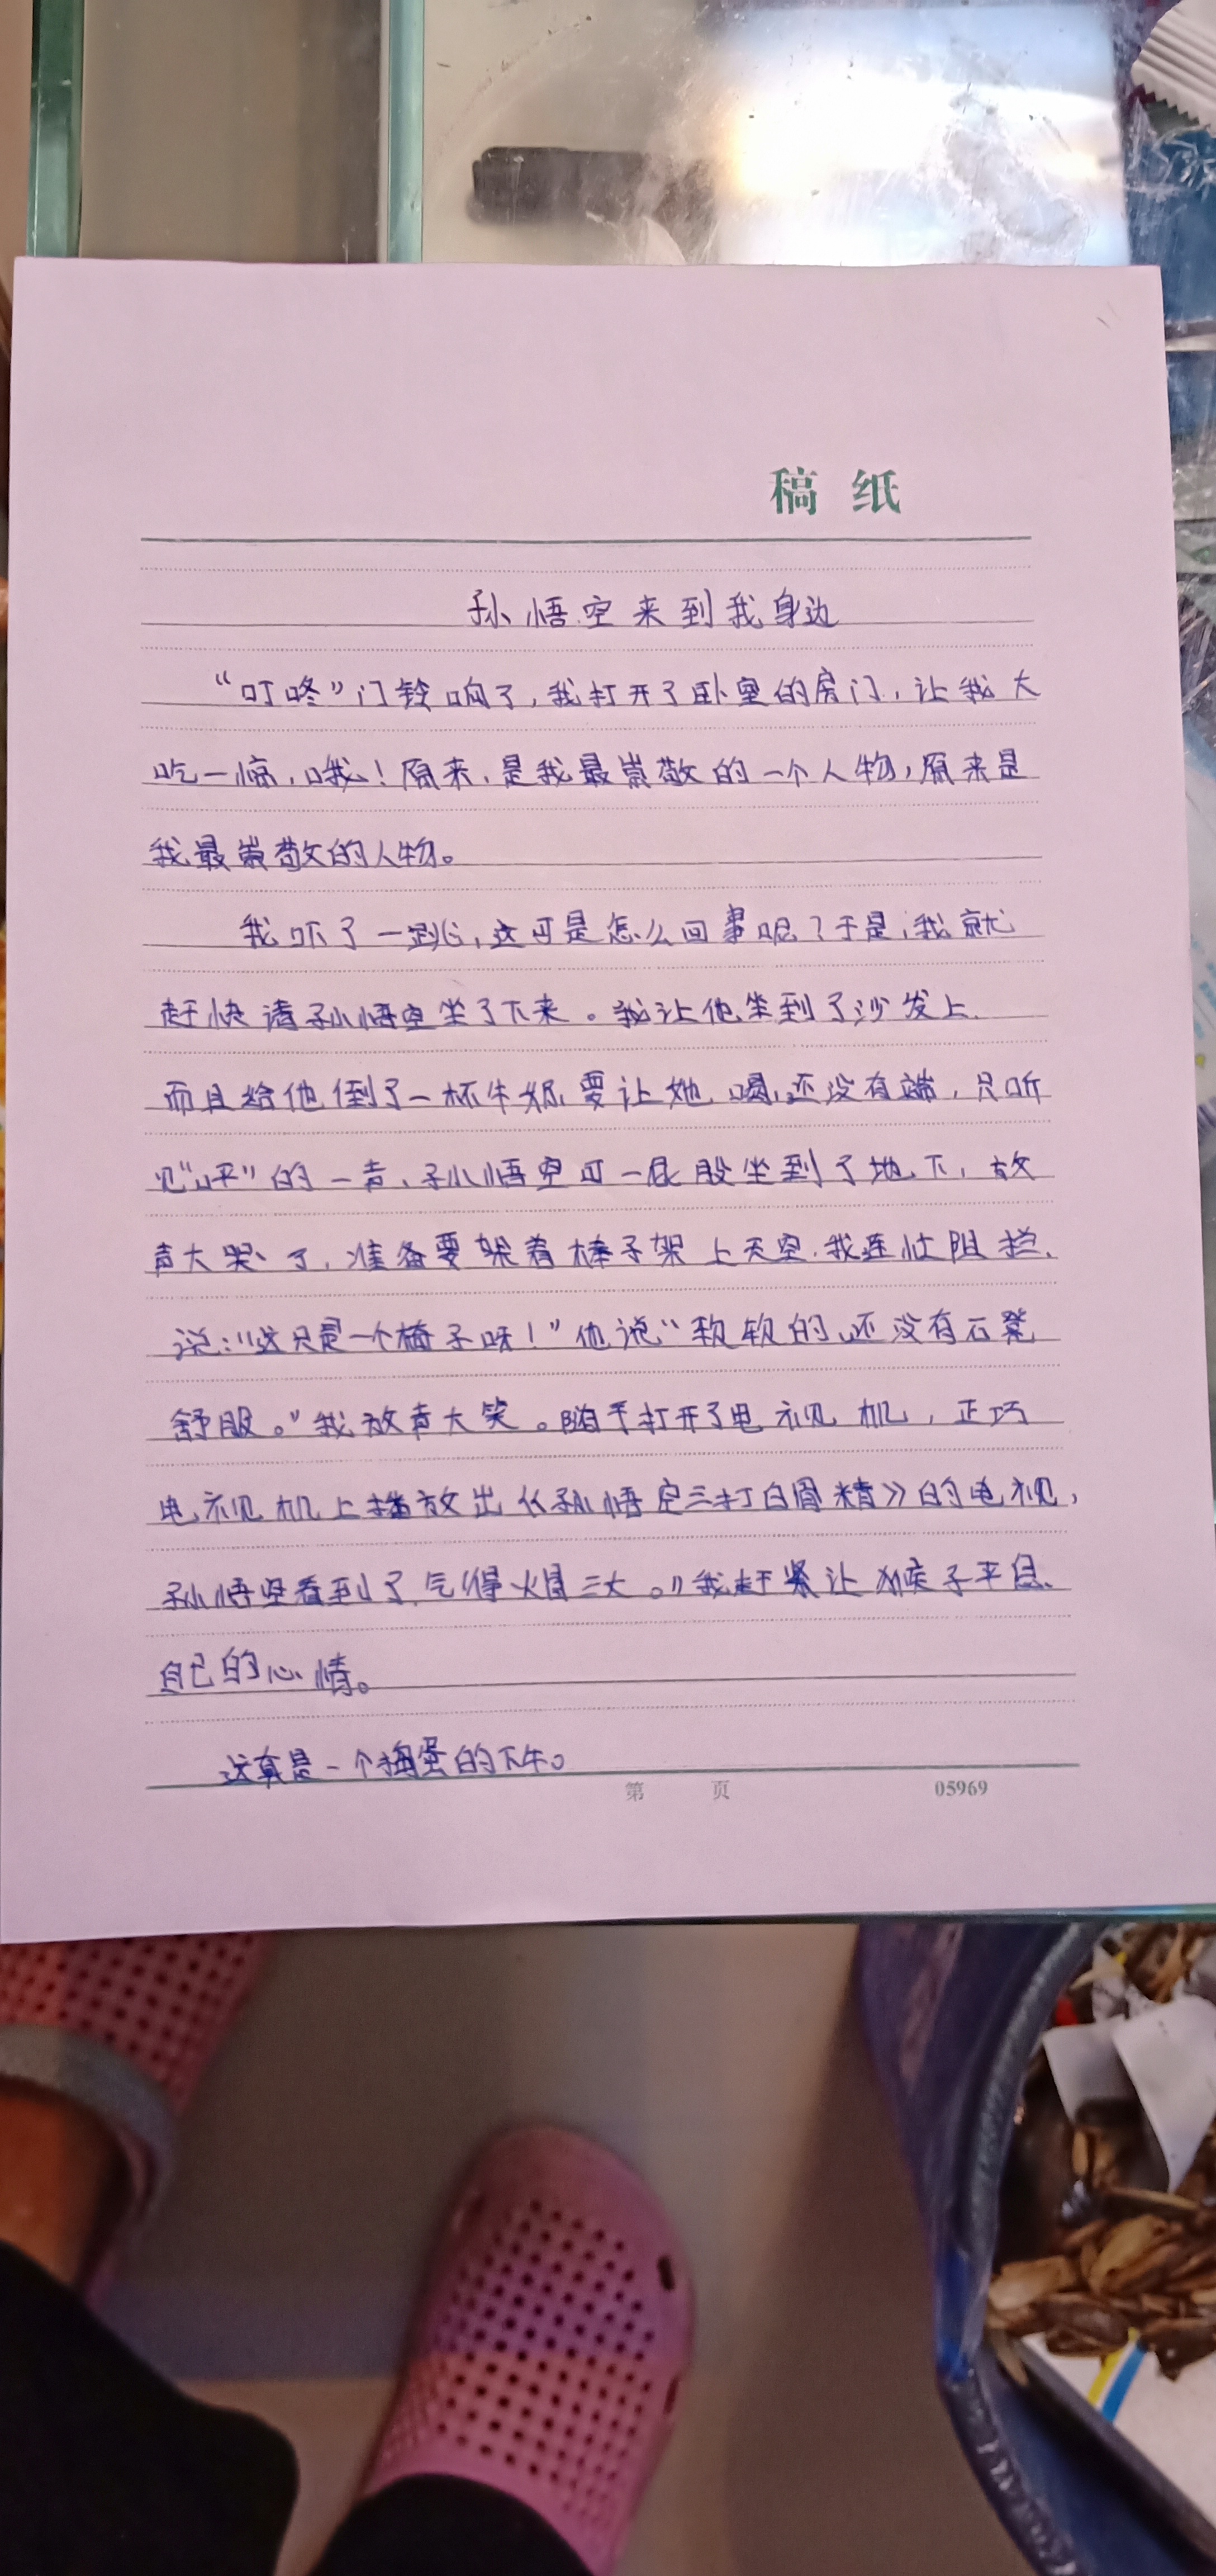 稿 纸
孙悟空来到我身边
“叮咚”门铃响了,我打开了卧室的房门,让我大
吃一惊,哦!原来,是我最崇敬的一个人物,原来是
我最崇敬的人物。
我吓了一跳,这可是怎么回事呢?于是,我就
赶快请孙悟空坐了下来。我让他坐到了沙发上,
而且给他倒了一杯牛奶,要让她喝,还没有端,只听
见“呯”的一声,孙悟空可一屁股坐到了地下,放
声大哭了,准备要架着棒子架上天空,我连忙阻拦,
说:“这只是一个椅子呀!”他说“软软的,还没有石凳
舒服。”我放声大笑。随手打开了电视机,正巧
电视机上播放出《孙悟空三打白骨精》的电视,
孙悟空看到了,气得火冒三大。”我赶紧让猴子平息
自己的心情。
这真是一个捣蛋的下午。
第 页 05969